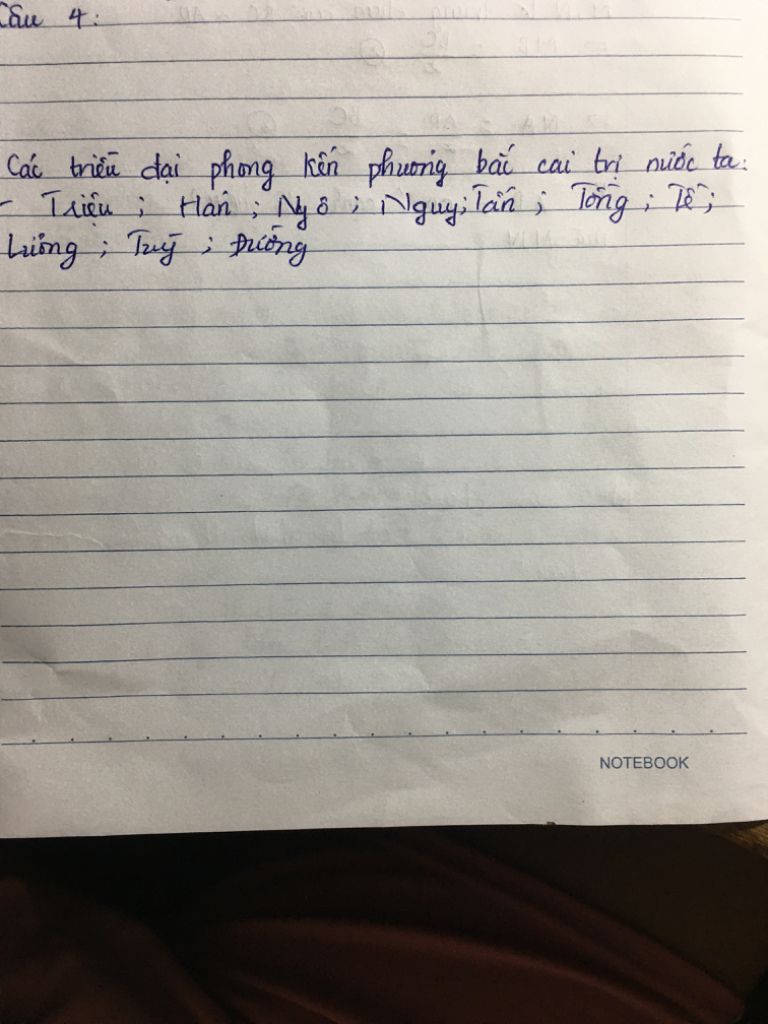 Câu 4:
Các triều đại phong kiến phương bắc cai trị nước ta:
- Triệu ; Hán ; Ngô ; Nguy; Tấn ; Tống ; Tề ;
Lương ; Tuỳ ; Đường
NOTEBOOK